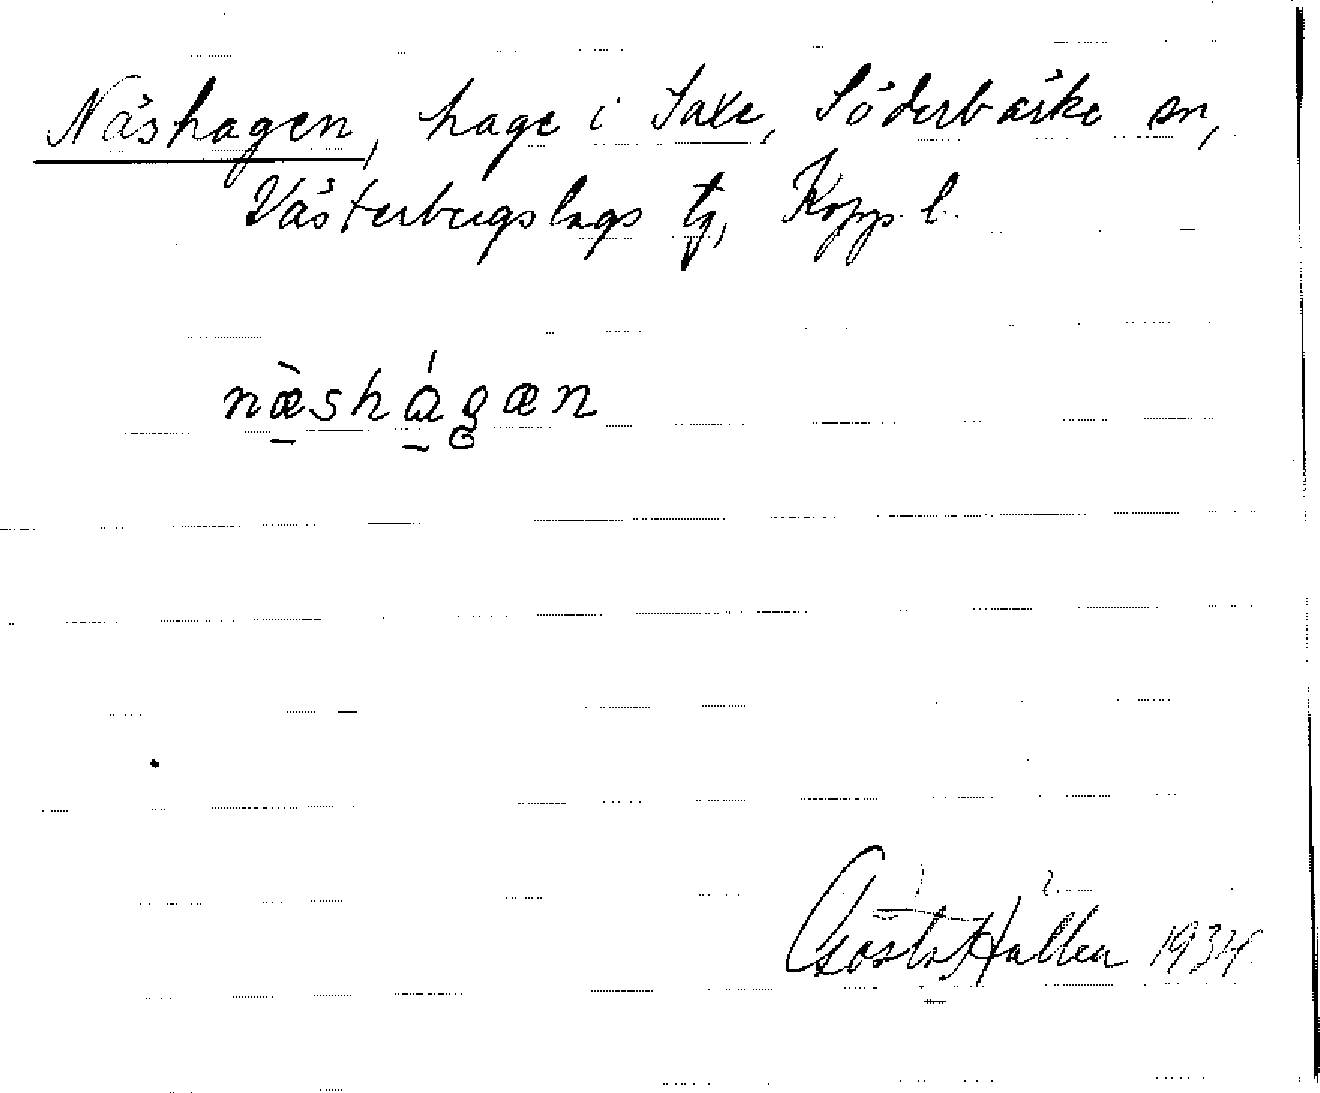 Näshagen, hage i Saxe, Söderbärke sn,
Västerbergslags tg, Kopp. l.
næ̀shágæn
Gösta Hallen 1934.